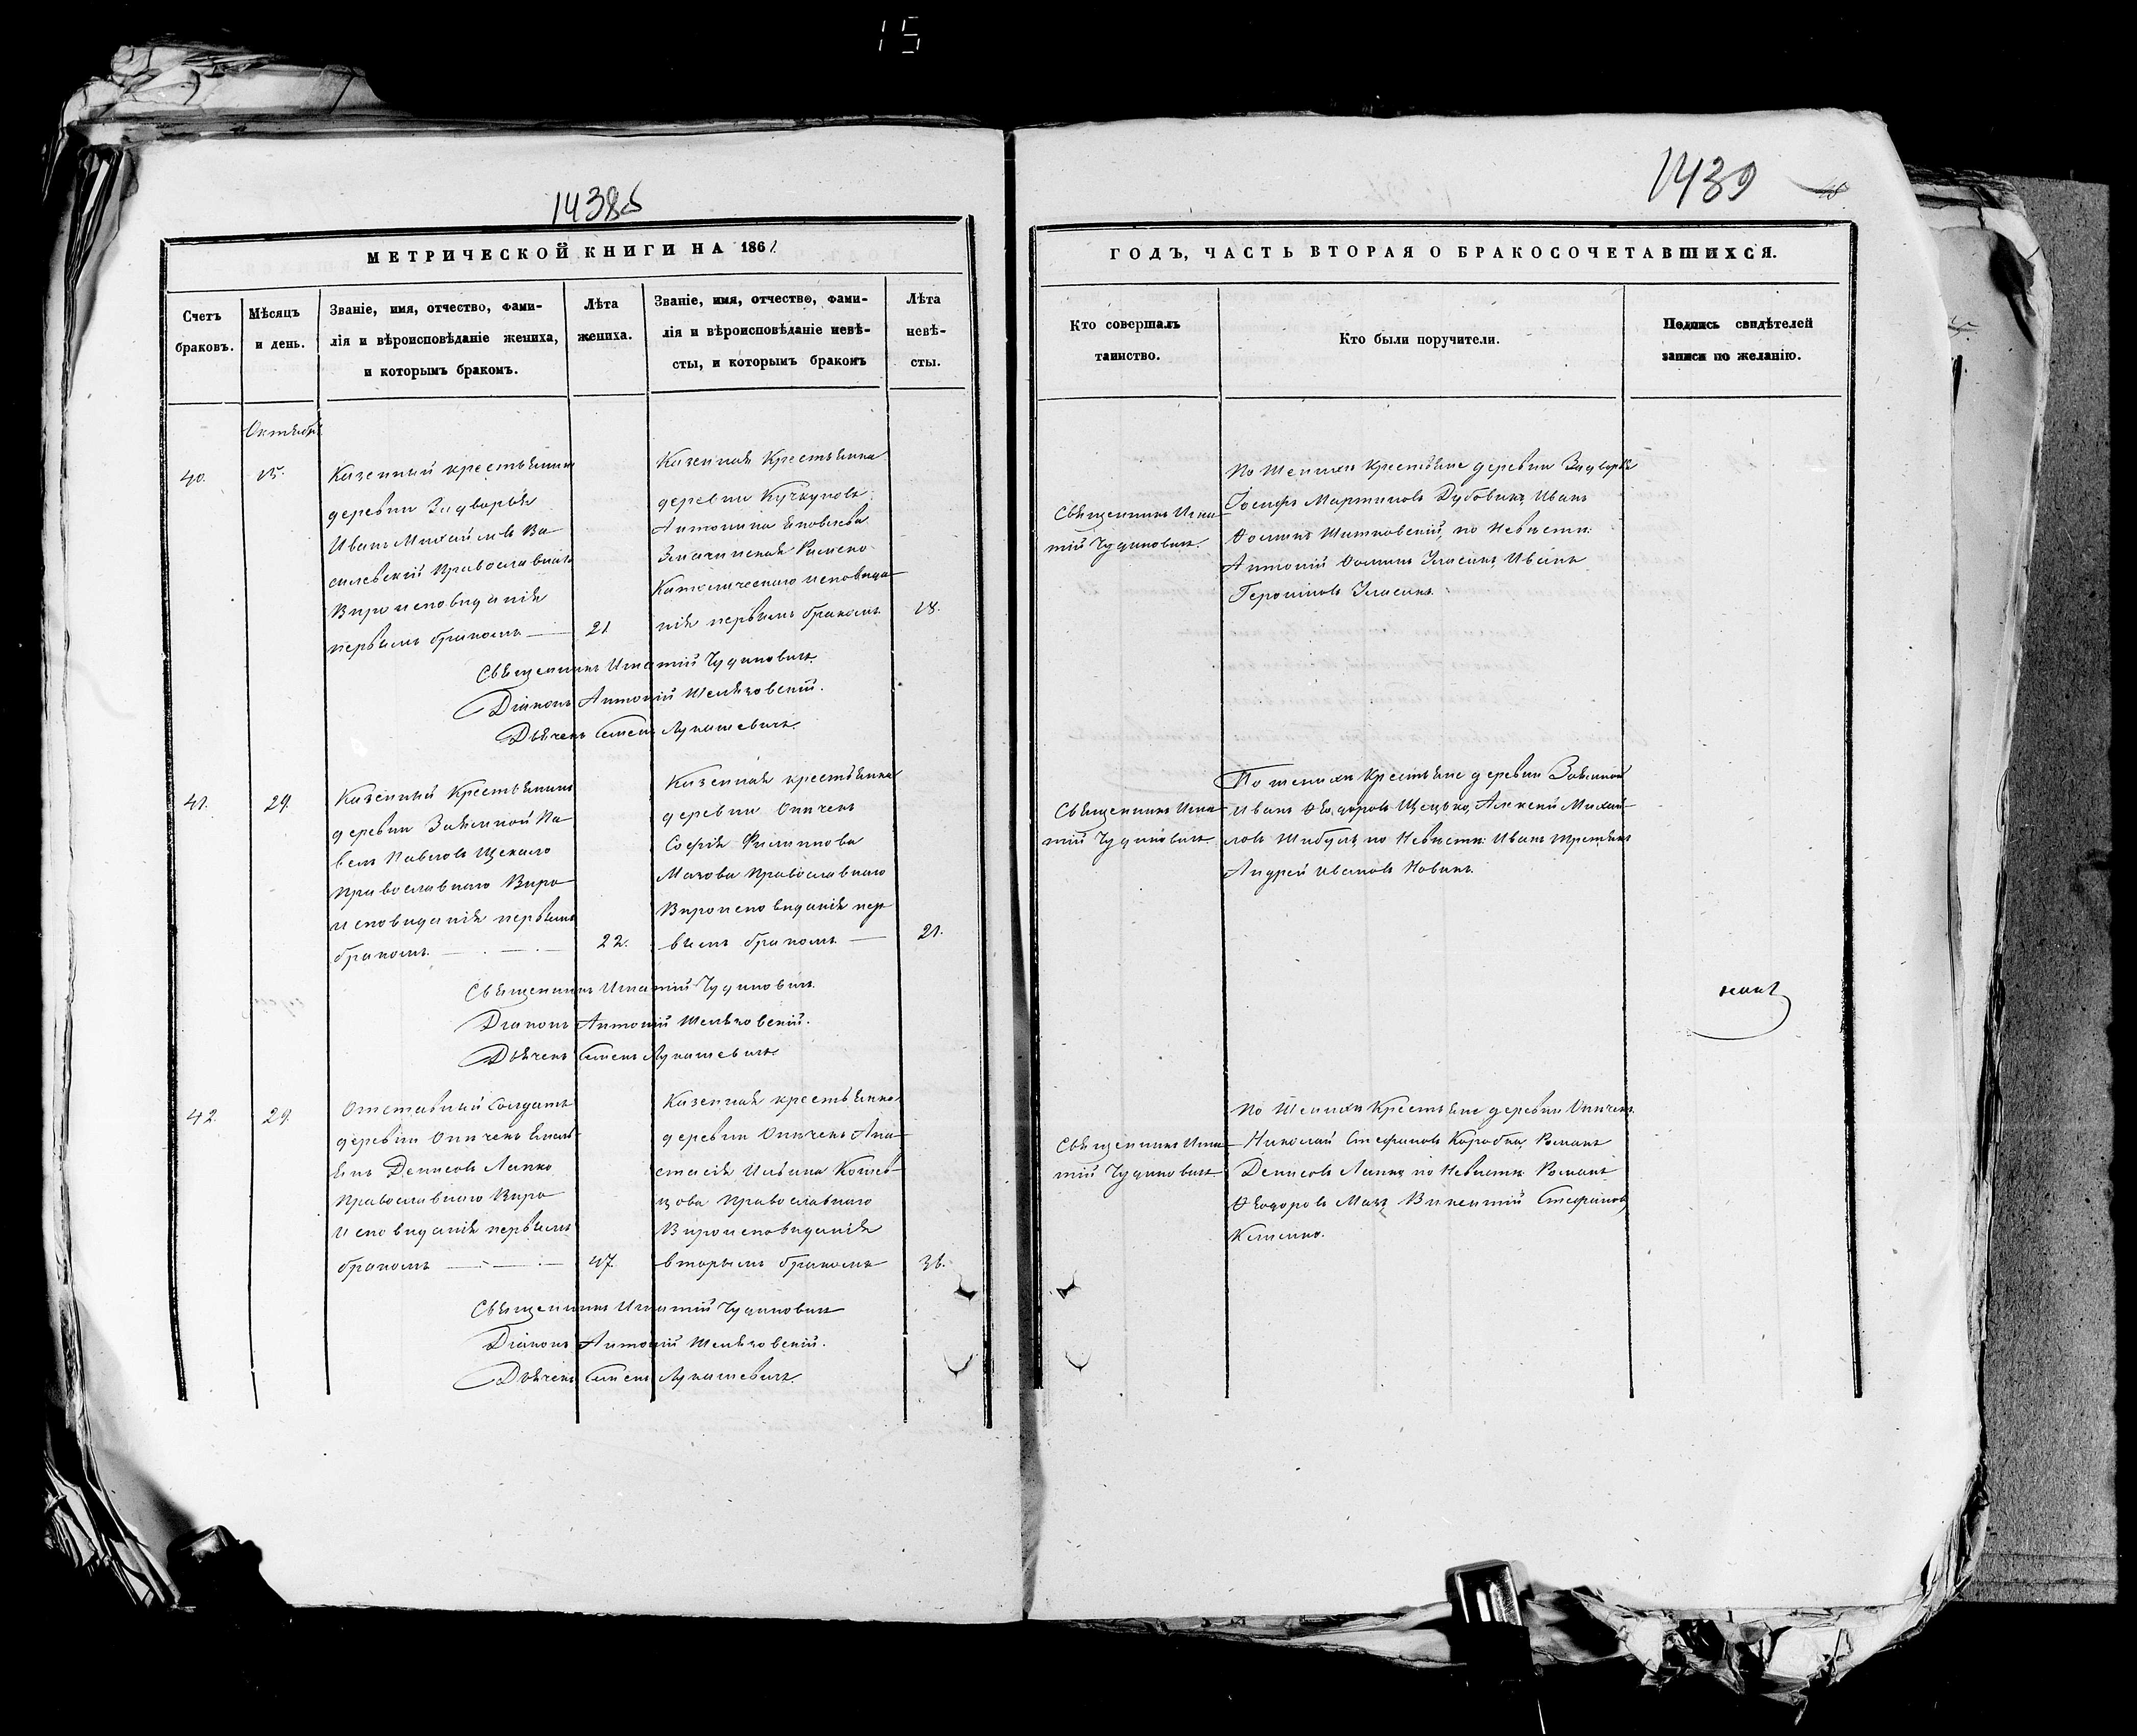 15
1438об
МЕТРИЧЕСКОЙ КНИГИ НА 1861
Счетъ
браковъ.
Мѣсяцъ
и день.
Званіе, имя, отчество, фами-
лія и вѣроисповѣданіе жениха,
и которымъ бракомъ.
Лѣта
жениха.
Званіе, имя, отчество, фами-
лія и вѣроисповѣданіе невѣ-
сты, и которымъ бракомъ
Лѣта
невѣ-
сты.
Октябрь
40.
15.
Казенный крестьянинъ
деревни Задворья
Иванъ Михайловъ Ва-
силевскій Православнаго
Вироисповиданія
первымъ бракомъ
21
Казенная Крестьянка
деревни Кучкуновъ
Антонина
Римско
Католическаго исповида
нія первымъ бракомъ
18.
Священникъ Игнатій Чудиновичъ
Діаконъ Антоній Шеляховскій.
Дьячекъ Семенъ Лукашевичъ.
41.
29.
Казенный Крестьянинъ
деревни Завинной Па
велъ Павловъ Щекало
Православнаго Виро
исповиданія первымъ
бракомъ.
22.
Казенная крестьянка
деревни Опичекъ
Софія Филипова
Мазова Православнаго
Вироисповиданія пер
вымъ бракомъ
21.
Священникъ Игнатій Чудиновичъ.
Діаконъ Антоній Шеляховскій.
Дьячекъ Семенъ Лукашевичъ
42.
29.
Отставный Солдатъ
деревни Опичекъ Емель
янъ Денисовъ Лапко
Православнаго Виро
исповиданія первымъ
бракомъ
47.
Казенная крестьянка
деревни Опичекъ Ана
стасія Ильина
Православнаго
Вироисповиданія
вторымъ бракомъ
36.
Священникъ Игнатій Чудиновичъ
Діаконъ Антоній Шеляховскій.
Дьячекъ Семенъ Лукашевичъ.
1439
ГОДЪ, ЧАСТЬ ВТОРАЯ О БРАКОСОЧЕТАВШИХСЯ.
Кто совершалъ
таинство.
Кто были поручители.
Подпись свидѣтелей
записи по желанію.
Священникъ Игна
тій Чудиновичъ.
По Женихи Крестьяне деревни Задворья
Іосифъ Мартиновъ Дубовикъ, Иванъ
Фоминъ Шитковскій, по Невисти:
Антоній Фоминъ Иванъ
Священникъ Игна
тій Чудиновичъ.
По женихи Крестьяне деревни Завинной
Иванъ Ѳеодоровъ Алексій Михай
ловъ по Невисти: Иванъ
Андрей Ивановъ Новикъ.
Священникъ Игна
тій Чудиновичъ.
По Женихи Крестьяне деревни Опичекъ
Николай Стефановъ Коробка, Романъ
Денисовъ Лапко, по Невисти Романъ
Ѳеодоровъ Мазъ Викентій Стефановъ